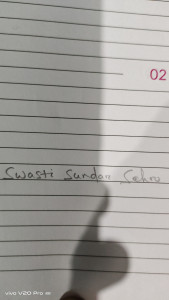 02
Swasti Sundar Sahu
vivo V20 Pro 5G